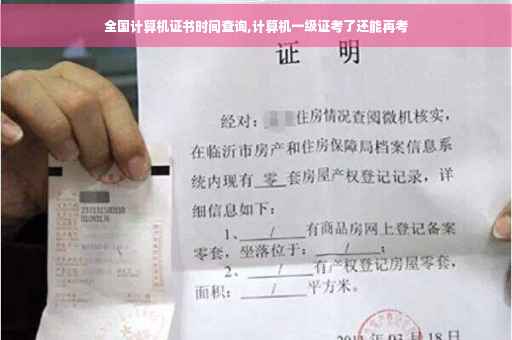 全国计算机证书时间查询,计算机一级证考了还能再考
证 明
经对: 住房情况查阅微机核实,
在临沂市房产和住房保障局档案信息系
统内现有 零 套房屋产权登记记录, 详
细信息如下:
1、 / 有商品房网上登记备案
零套, 坐落位于: / ;
2、 / 有产权登记房屋零套,
面积: / 平方米。
03月18日